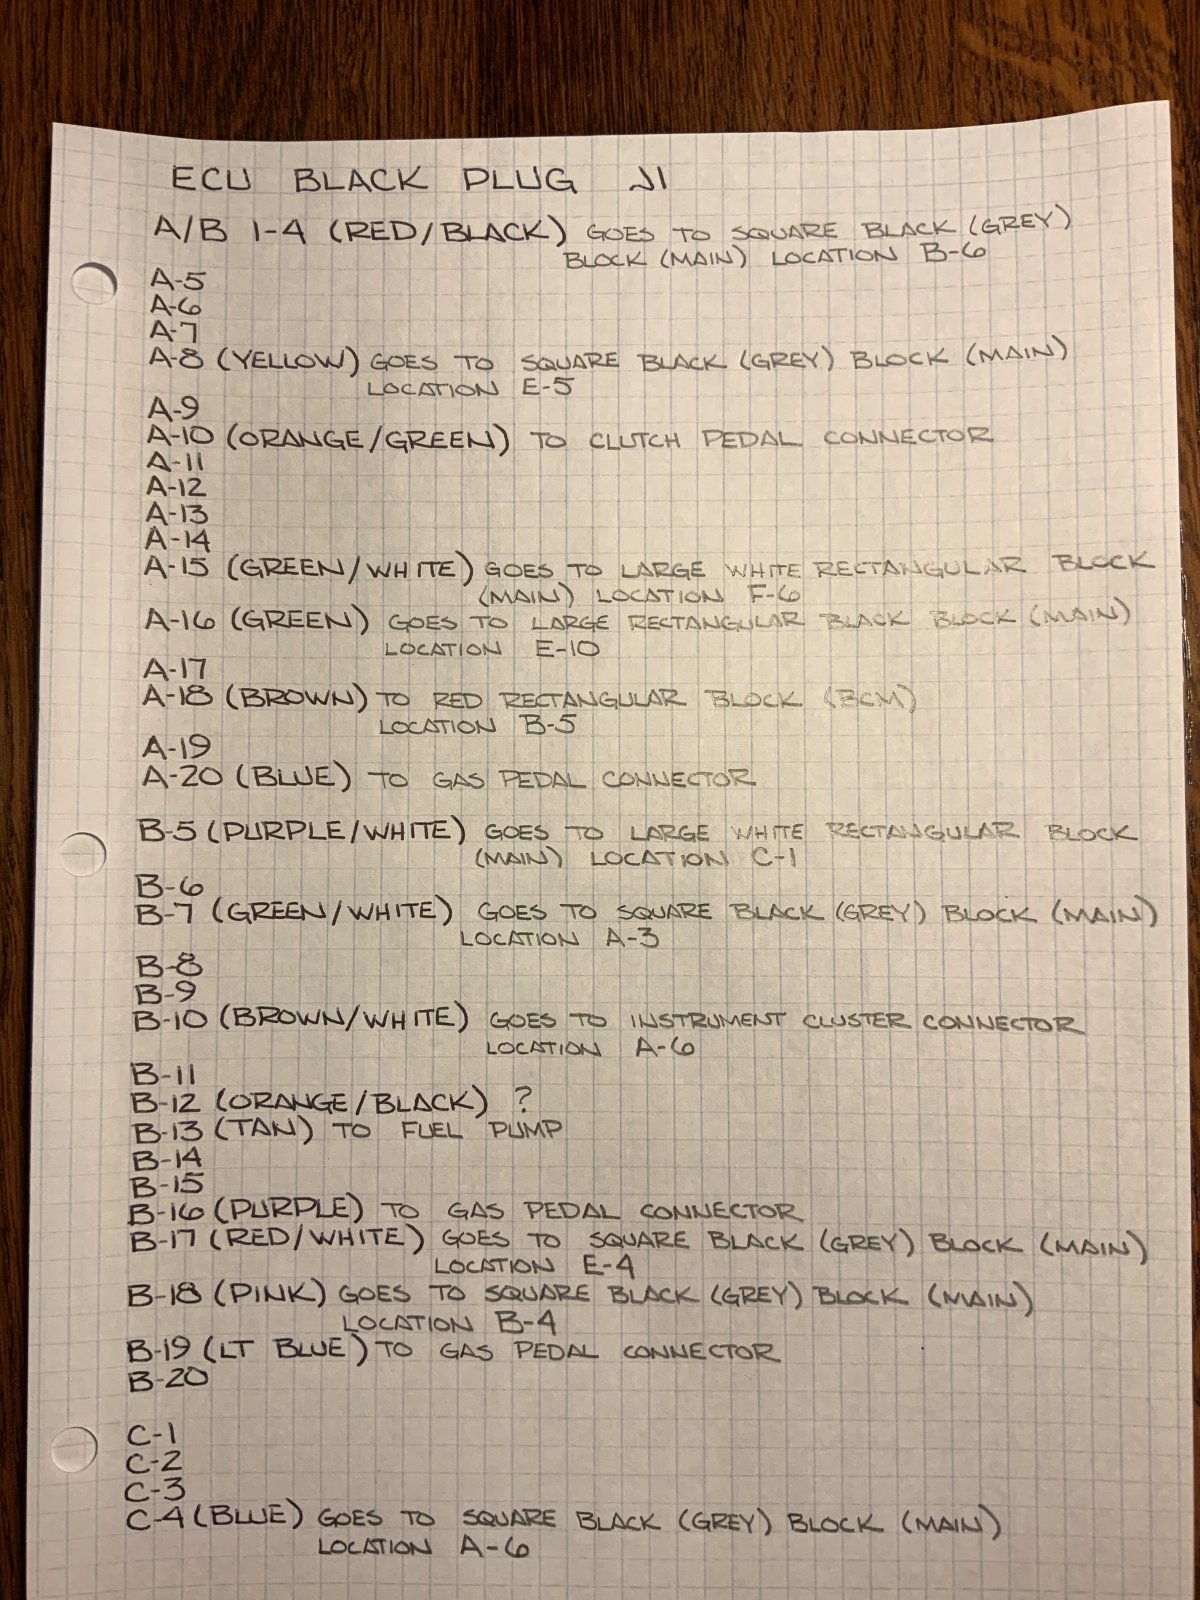 ECU BLACK PLUG J1
A/B 1-4 (RED/BLACK) GOES TO SQUARE BLACK (GREY)
BLOCK (MAIN) LOCATION B-6
A-5
A-6
A-7
A-8 (YELLOW) GOES TO SQUARE BLACK (GREY) BLOCK (MAIN)
LOCATION E-5
A-9
A-10 (ORANGE/GREEN) TO CLUTCH PEDAL CONNECTOR
A-11
A-12
A-13
A-14
A-15 (GREEN/WHITE) GOES TO LARGE WHITE RECTANGULAR BLOCK
(MAIN) LOCATION F-6
A-16 (GREEN) GOES TO LARGE RECTANGULAR BLACK BLOCK (MAIN)
LOCATION E-10
A-17
A-18 (BROWN) TO RED RECTANGULAR BLOCK (BCM)
LOCATION B-5
A-19
A-20 (BLUE) TO GAS PEDAL CONNECTOR
B-5 (PURPLE/WHITE) GOES TO LARGE WHITE RECTANGULAR BLOCK
(MAIN) LOCATION C-1
B-6
B-7 (GREEN/WHITE) GOES TO SQUARE BLACK (GREY) BLOCK (MAIN)
LOCATION A-3
B-8
B-9
B-10 (BROWN/WHITE) GOES TO INSTRUMENT CLUSTER CONNECTOR
LOCATION A-6
B-11
B-12 (ORANGE/BLACK) ?
B-13 (TAN) TO FUEL PUMP
B-14
B-15
B-16 (PURPLE) TO GAS PEDAL CONNECTOR
B-17 (RED/WHITE) GOES TO SQUARE BLACK (GREY) BLOCK (MAIN)
LOCATION E-4
B-18 (PINK) GOES TO SQUARE BLACK (GREY) BLOCK (MAIN)
LOCATION B-4
B-19 (LT BLUE) TO GAS PEDAL CONNECTOR
B-20
C-1
C-2
C-3
C-4 (BLUE) GOES TO SQUARE BLACK (GREY) BLOCK (MAIN)
LOCATION A-6